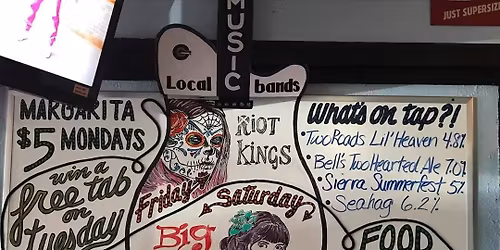 JUST SUPERSIZ
MUSIC
Local bands
MARGARITA
$5 MONDAYS
win a
free tab
on
Tuesday
RIOT
KINGS
Friday
Saturday
BIG
What's on tap?!
• Two Roads Lil' Heaven 4.8%
• Bell's Two Hearted Ale 7.0%
• Sierra Summerfest 5%
• Seahag 6.2%
FOOD